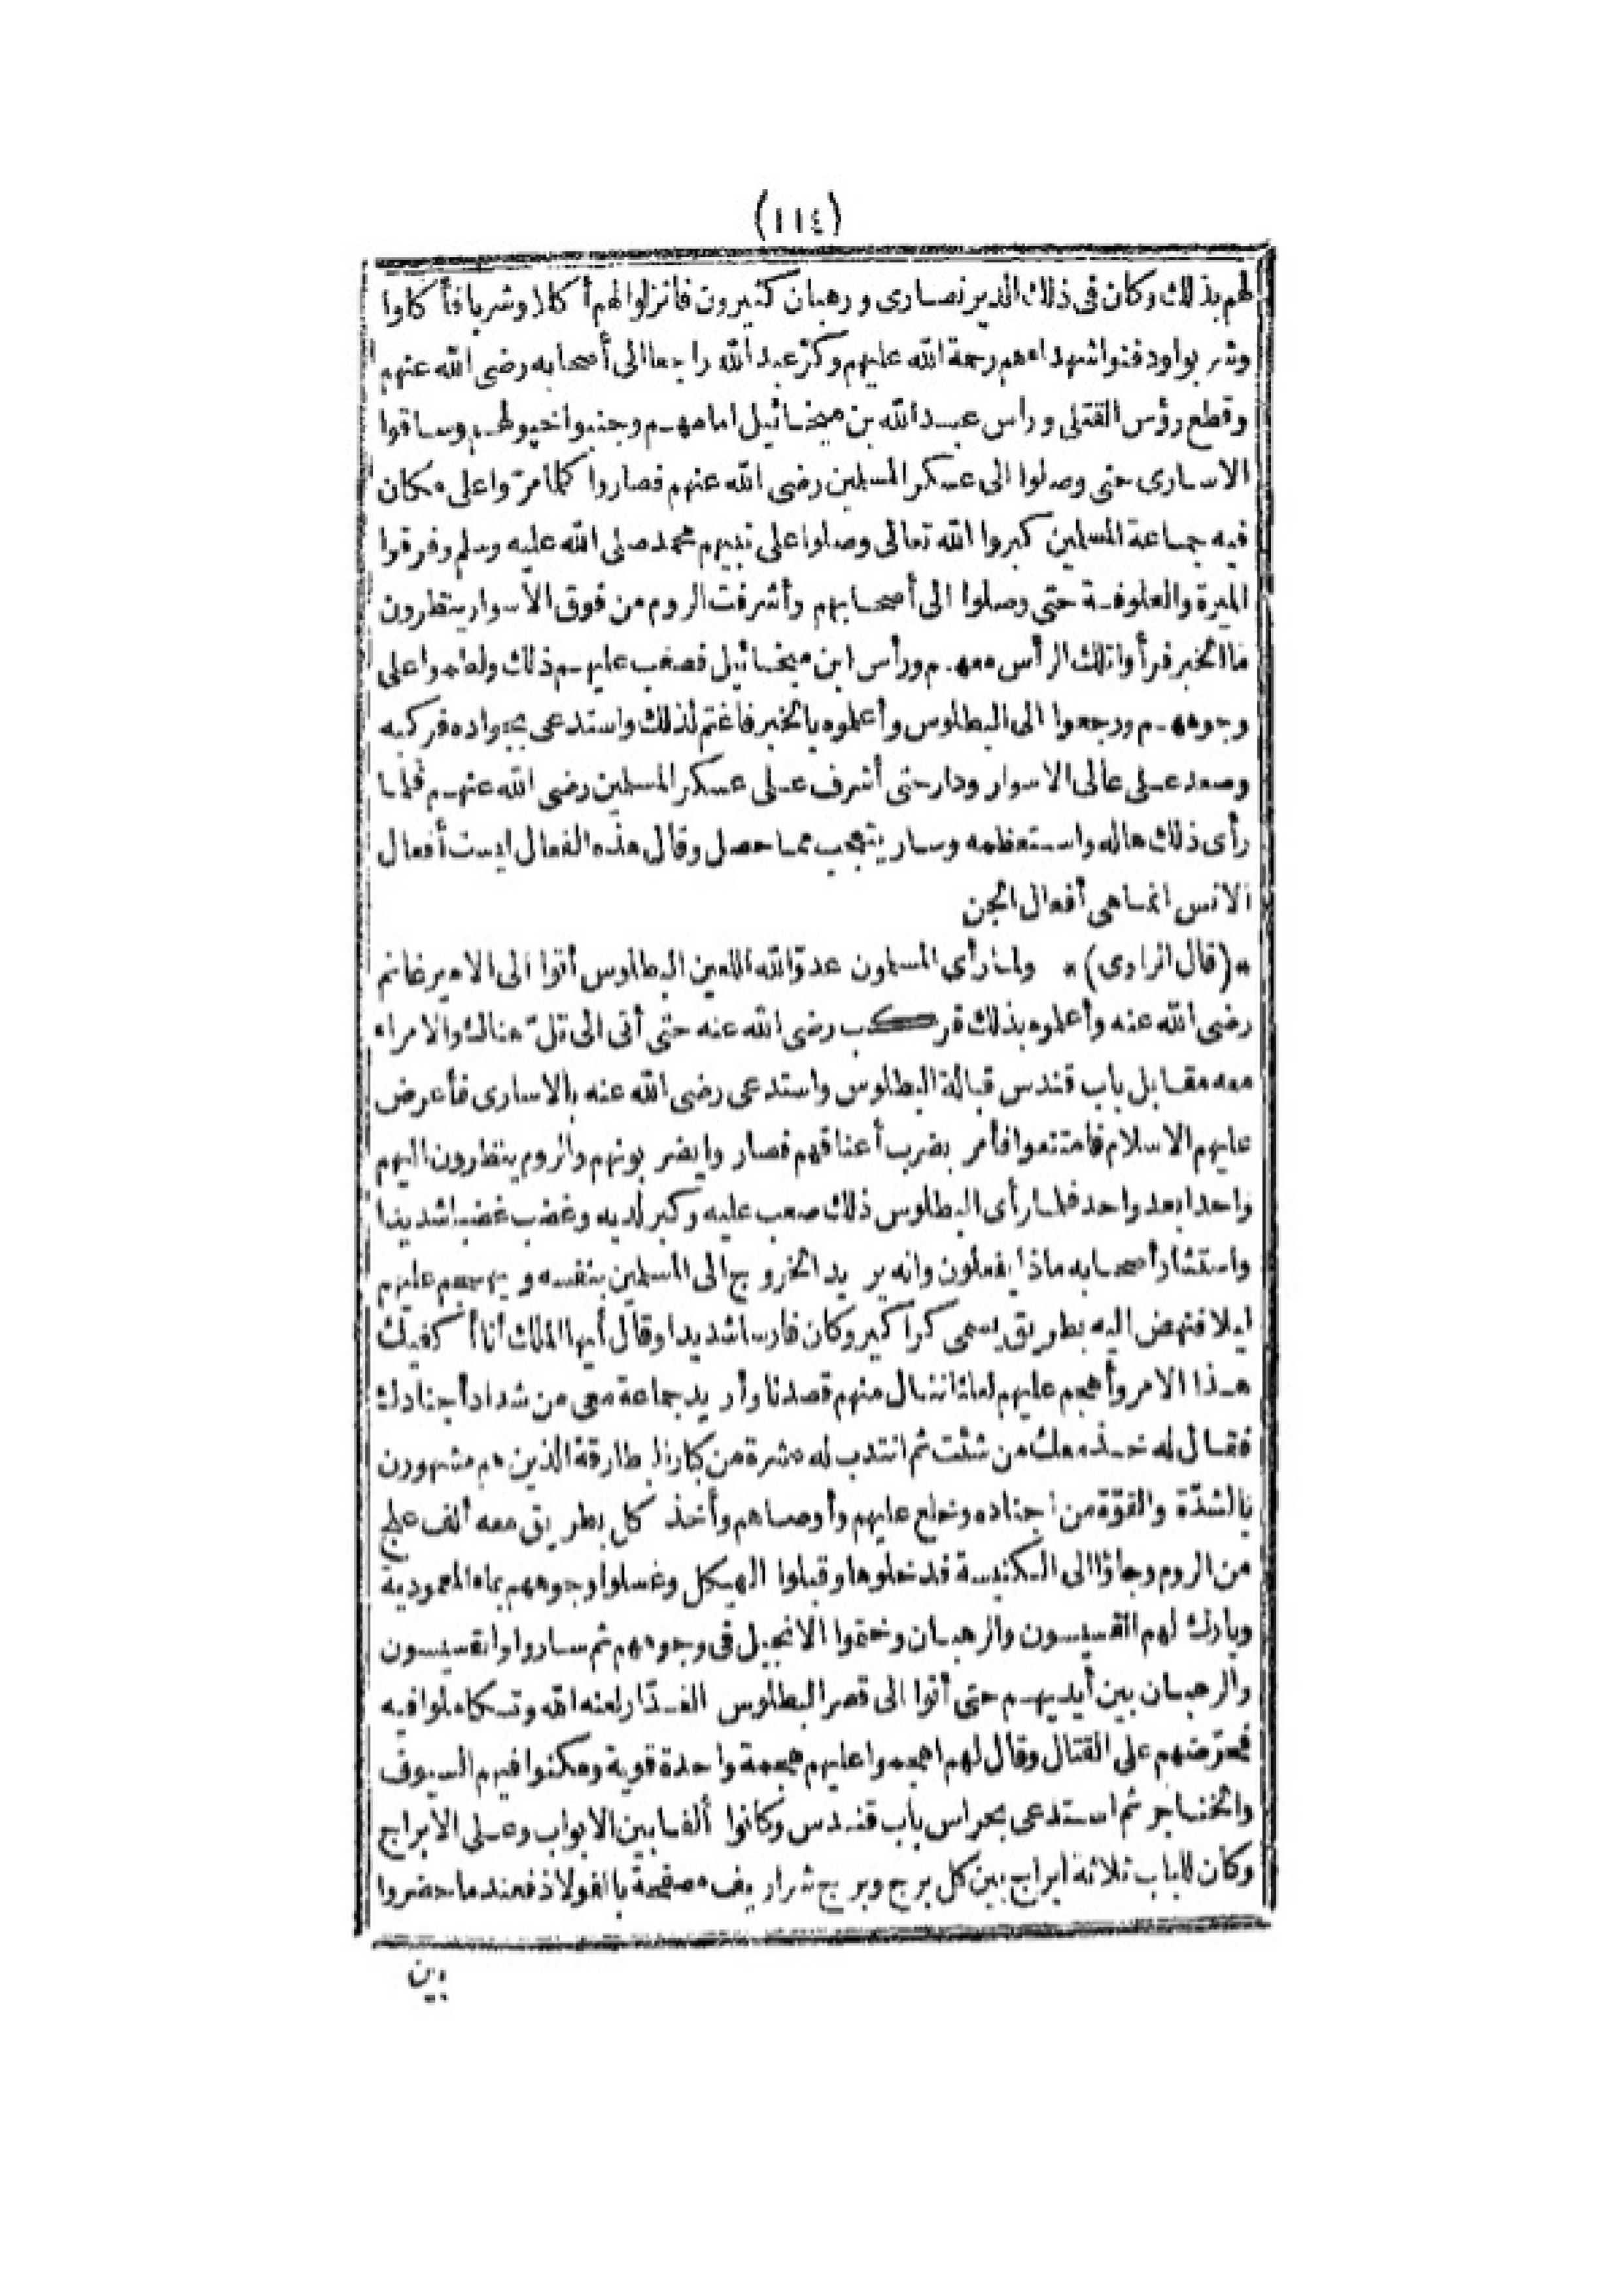 (١١٤)
لهم بذلك وكان فى ذلك الدير نصارى ورهبان كثيرون فانزلوا لهم أكلا وشربا فأكلوا
وشربوا ودفنوا شهداءهم رحمة الله عليهم وكرّ عبدالله راجعا الى أصحابه رضى الله عنهم
وقطع رؤس القتلى وراس عبدالله بن ميخائيل امامهم وجنبوا خيولهم وساقوا
الاسارى حتى وصلوا الى عسكر المسلمين رضى الله عنهم فصاروا كلما مرّوا على مكان
فيه جماعة المسلمين كبروا الله تعالى وصلوا على نبيهم محمد صلى الله عليه وسلم وفرقوا
الميرة والعلوفة حتى وصلوا الى أصحابهم وأشرفت الروم من فوق الاسوار ينظرون
ما الخبر فرأوا تلك الرأس معهم ورأس ابن ميخائيل فصعب عليهم ذلك ولطموا على
وجوههم ورجعوا الى البطلوس وأعلموه بالخبر فاغتم لذلك واستدعى بجواده فركبه
وصعد على عالى الاسوار ودار حتى أشرف على عسكر المسلمين رضى الله عنهم فلما
رأى ذلك هاله واستعظمه وسار يتعجب مما حصل وقال هذه الفعال ليست أفعال
الانس انما هى أفعال الجن
*(قال الراوى)* ولما رأى المسلمون عدوّ الله اللعين البطلوس أتوا الى الامير غانم
رضى الله عنه وأعلموه بذلك فركب رضى الله عنه حتى أتى الى تلّ هناك والامراء
معه مقابل باب قندس قبالة البطلوس واستدعى رضى الله عنه بالاسارى فأعرض
عليهم الاسلام فامتنعوا فأمر بضرب أعناقهم فصاروا يضربونهم والروم ينظرون اليهم
واحدا بعد واحد فلما رأى البطلوس ذلك صعب عليه وكبر لديه وغضب غضبا شديدا
واستشار أصحابه ماذا يفعلون وانه يريد الخروج الى المسلمين بنفسه ويهجم عليهم
ليلا فنهض اليه بطريق يسمى كراكير وكان فارسا شديدا وقال أيها الملك أنا أكفيك
هذا الامر وأهجم عليهم لعلنا ننال منهم قصدنا وأريد جماعة معى من شداد أجنادك
فقال له خذ معك من شئت ثم انتدب له عشرة من كبار البطارقة الذين هم مشهورون
بالشدّة والقوّة من اجناده وخلع عليهم وأوصاهم وأخذ كل بطريق معه ألف علج
من الروم وجاؤا الى الكنيسة فدخلوها وقبلوا الهيكل وغسلوا وجوههم بماء المعمودية
وبارك لهم القسيسون والرهبان وختموا الانجيل فى وجوههم ثم ساروا والقسيسون
والرهبان بين أيديهم حتى أتوا الى قصر البطلوس الغدّار لعنه الله وتكاملوا فيه
فحرّضهم على القتال وقال لهم اهجموا عليهم هجمة واحدة قوية ومكنوا فيهم السيوف
والخناجر ثم استدعى بحراس باب قندس وكانوا ألفا بين الابواب وعلى الابراج
وكان للباب ثلاثة ابراج بين كل برج وبرج شراريف مصفحة بالفولاذ فعندما حضروا
بين